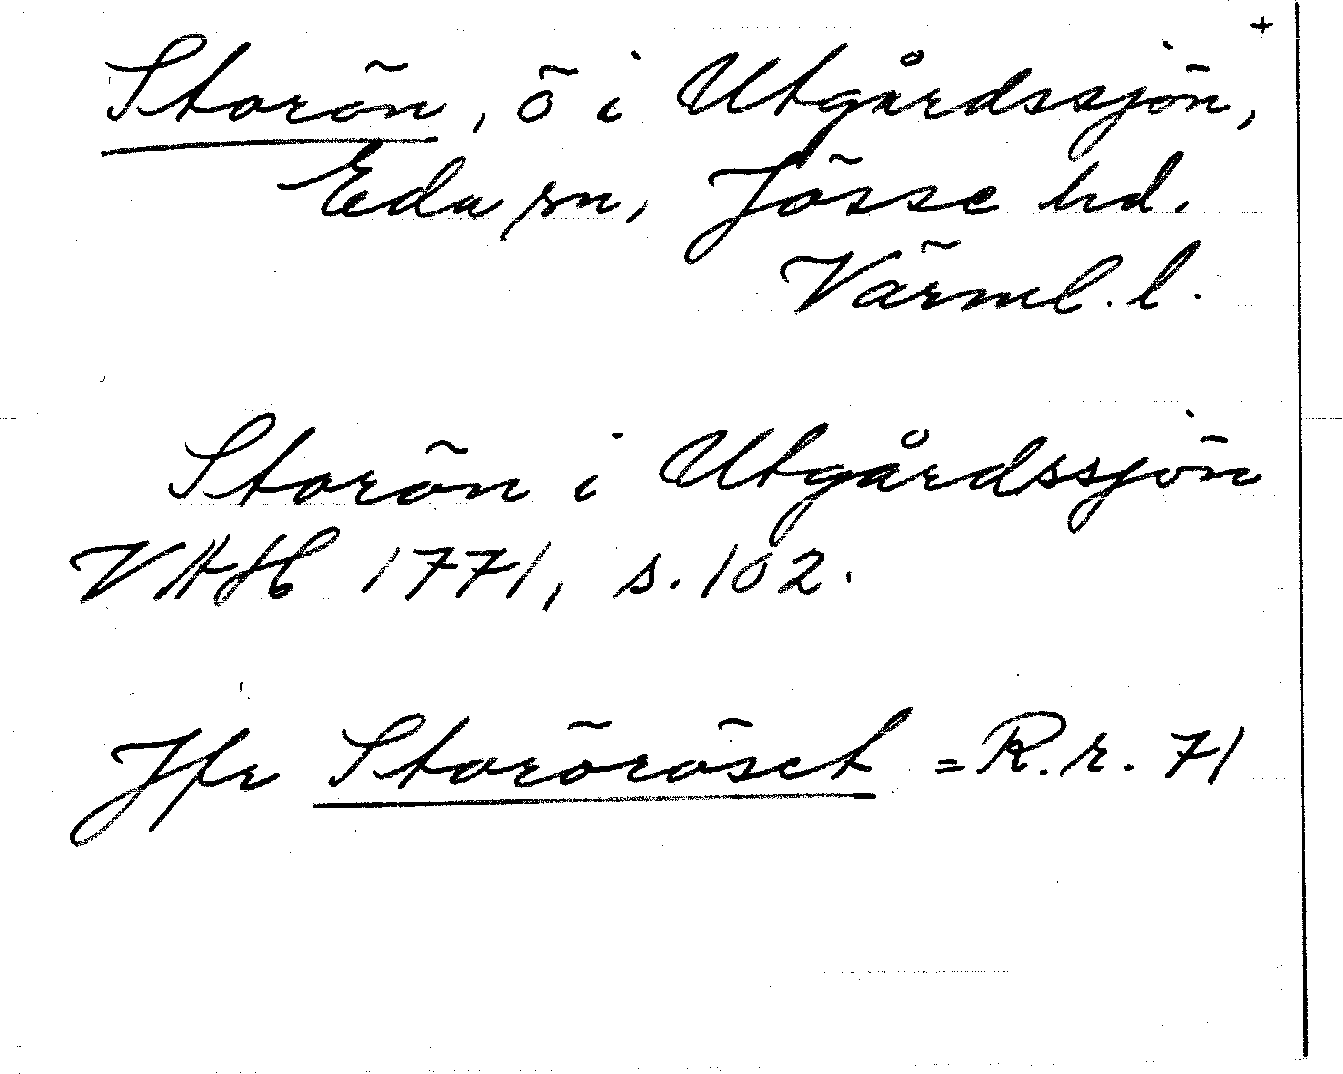 +
Storön, ö i Utgårdssjön,
Eda sn, Jösse hd.
Värml. l.
Storön i Utgårdssjön
VAH 1771, s. 102.
Jfr Storöröset = R.r. 71